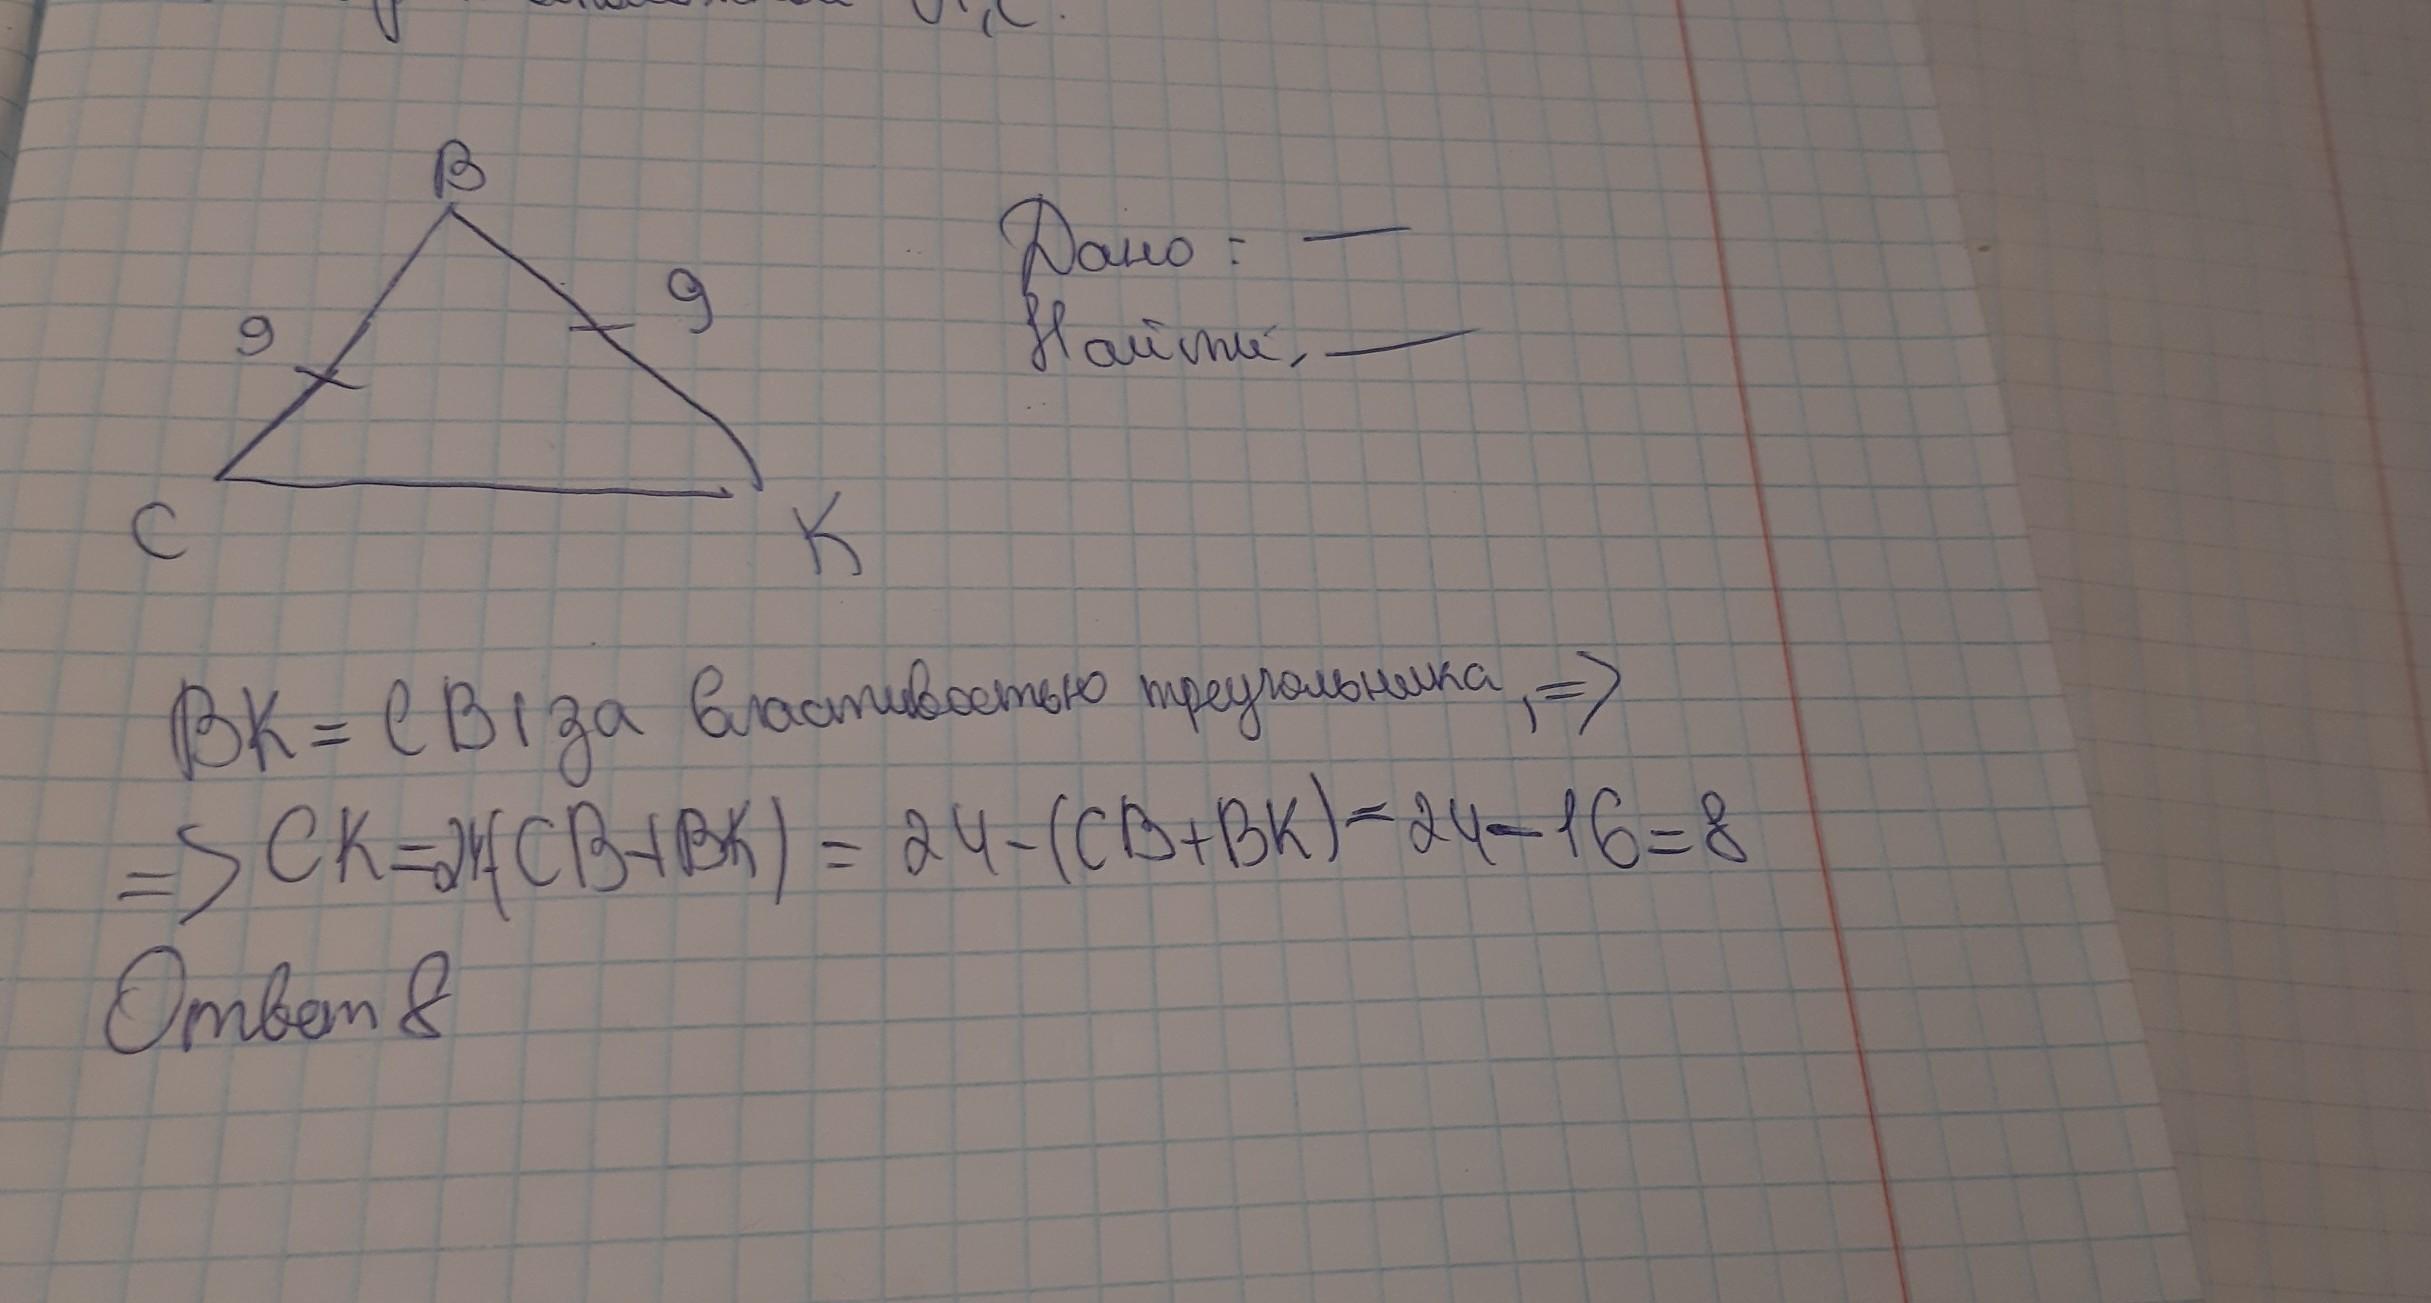 B
9
9
C
K
Дано: —
Найти, —
BK = CB, за властивостью треугольника, =>
=> CK=24-(CB+BK) = 24-(CB+BK)=24-16=8
Ответ 8